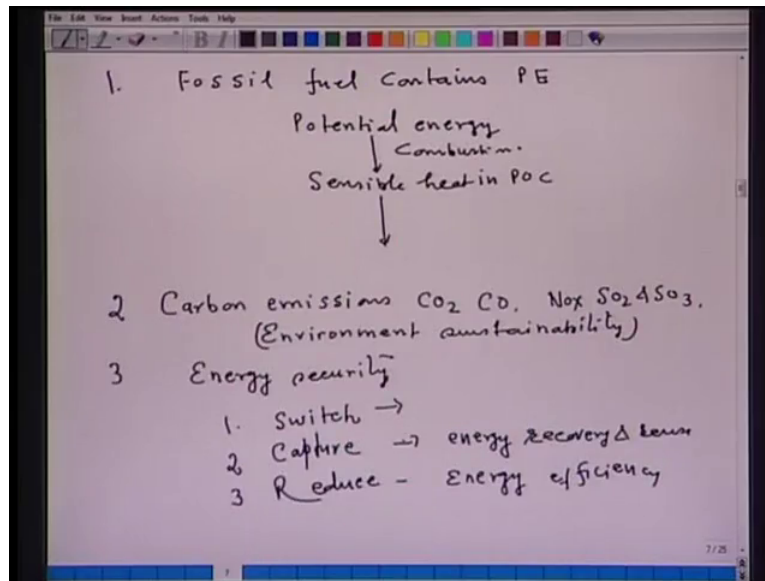 File Edit View Insert Actions Tools Help
B I
1. Fossil fuel Contains PE
Potential energy
Combustion.
Sensible heat in POC
2 Carbon emissions CO2 CO. NOx SO2 & SO3.
(Environment sustainability)
3 Energy security
1. Switch →
2 Capture → energy recovery & reuse
3 Reduce - Energy efficiency
7/25
7